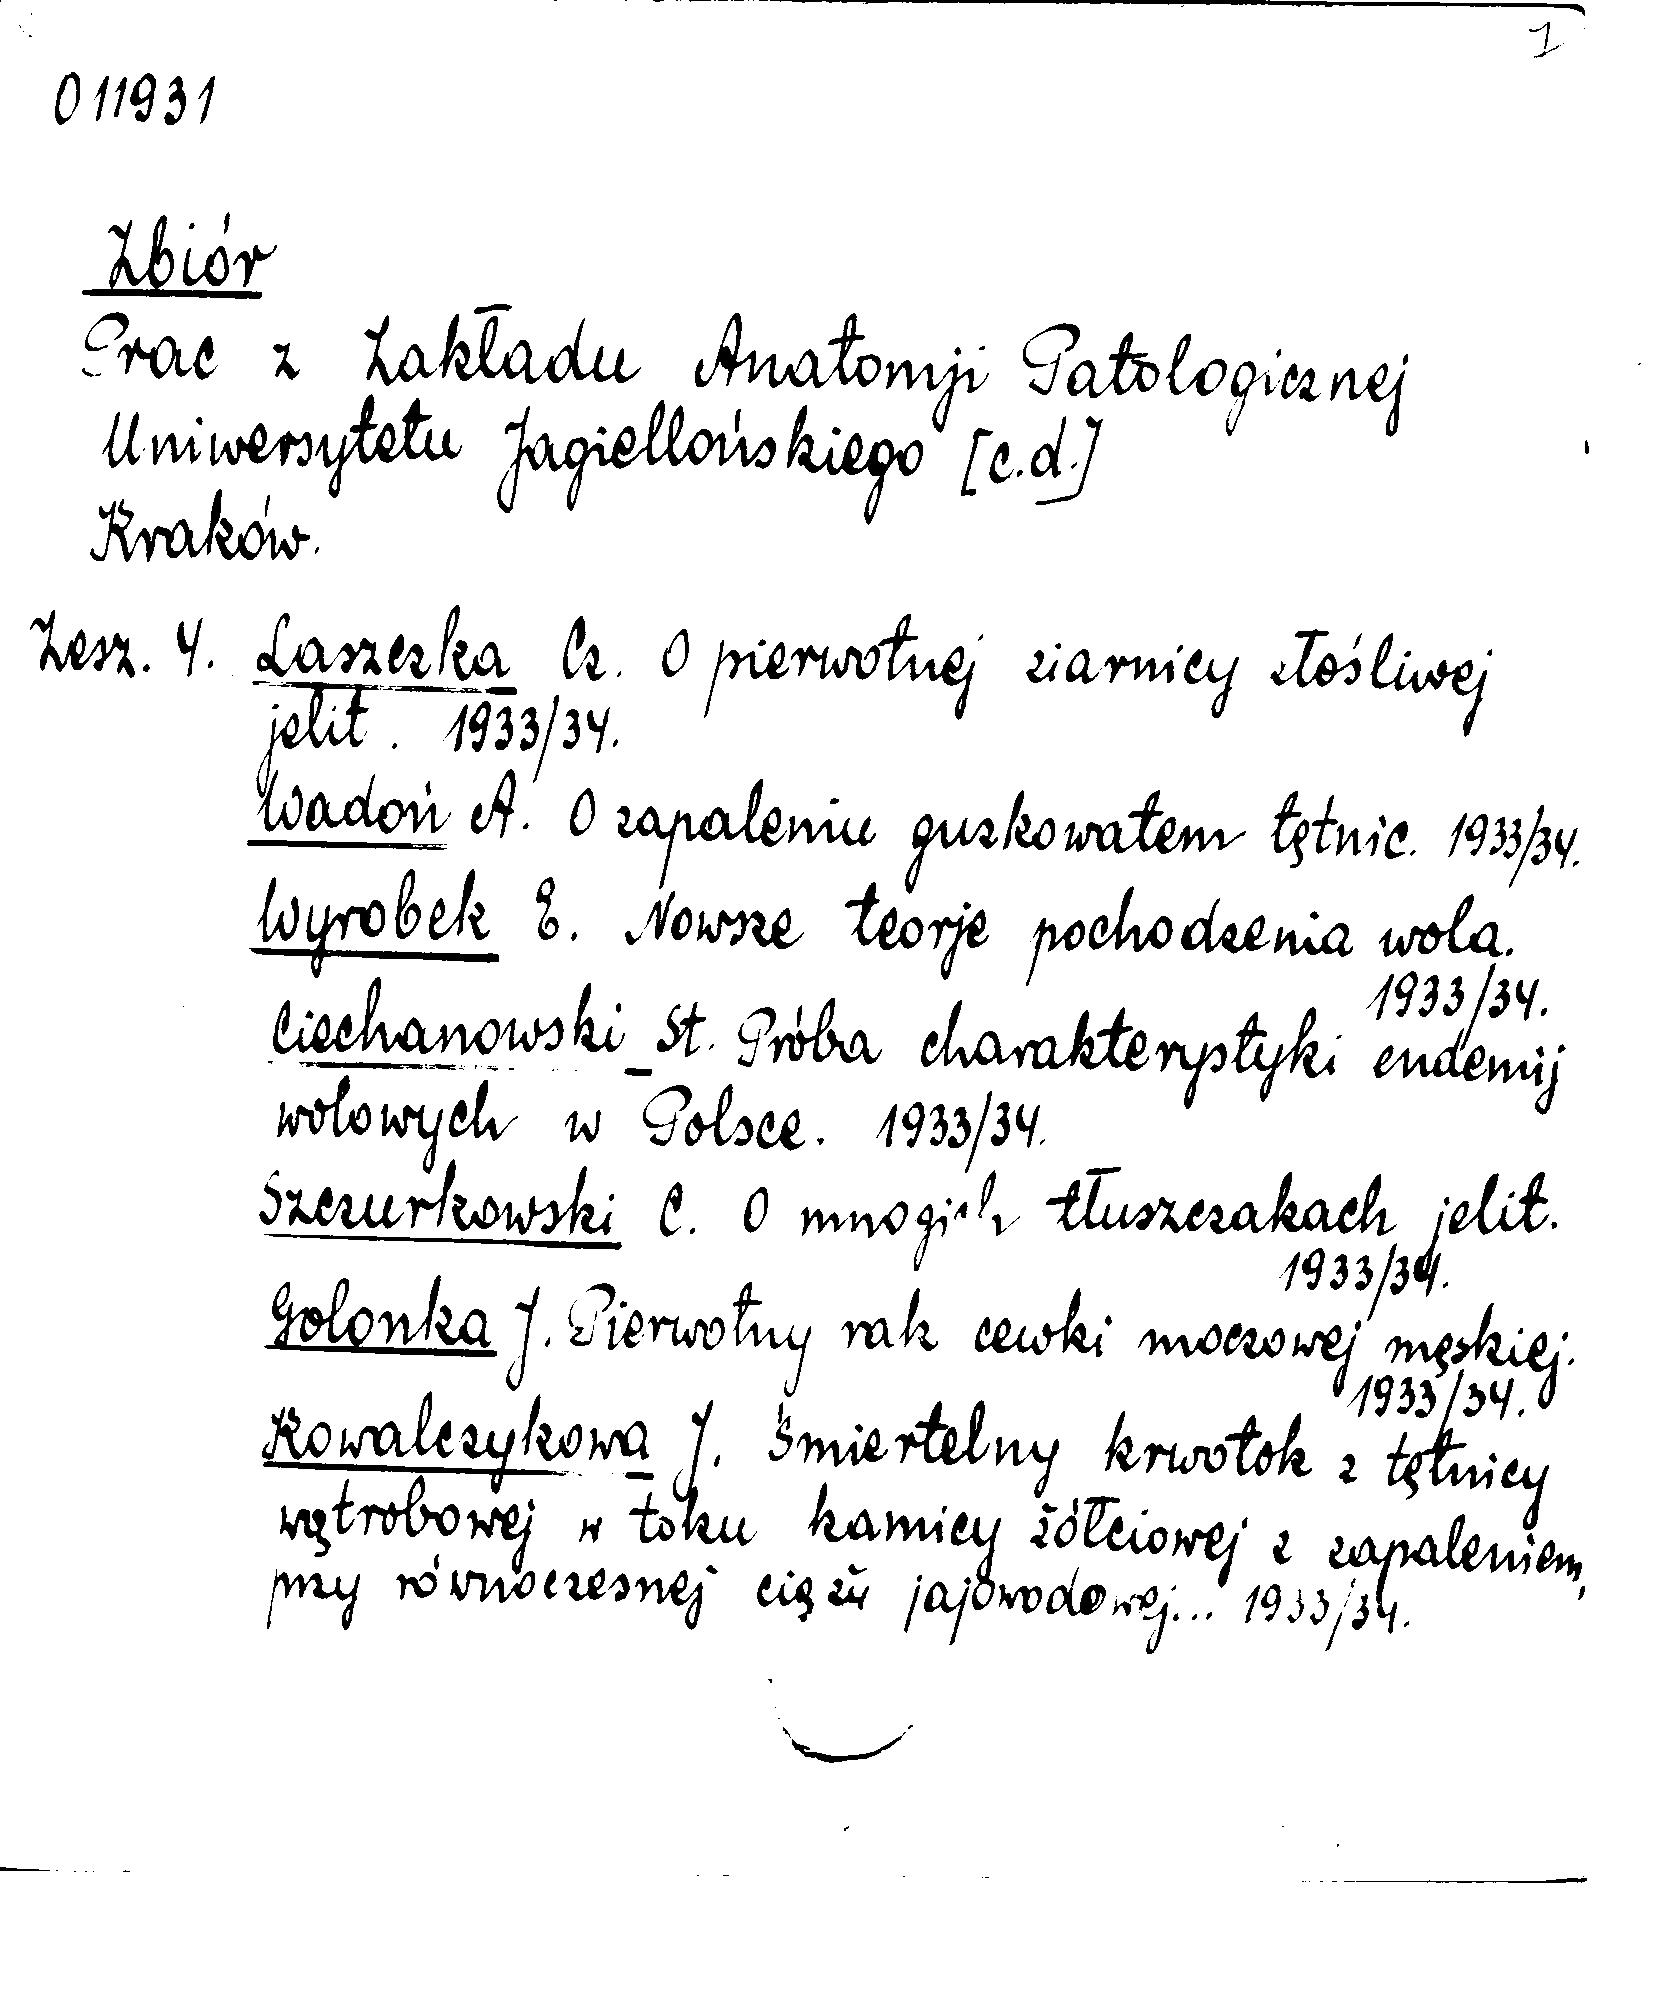 1
011931
Zbiór
Prac z Zakładu Anatomji Patologicznej
Uniwersytetu Jagiellońskiego [c.d.]
Kraków.
Zesz. 4. Laszczka Cz. O pierwotnej ziarnicy złośliwej
jelit. 1933/34.
Wadoń A. O zapaleniu guzkowatem tętnic. 1933/34.
Wyrobek E. Nowsze teorje pochodzenia wola.
1933/34.
Ciechanowski St. Próba charakterystyki endemij
wolowych w Polsce. 1933/34.
Szczurkowski C. O mnogich tłuszczakach jelit.
1933/34.
Golonka J. Pierwotny rak cewki moczowej męskiej.
1933/34.
Kowalczykowa J. Śmiertelny krwotok z tętnicy
wątrobowej w toku kamicy żółciowej z zapaleniem,
przy równoczesnej ciąży jajowodowej... 1933/34.